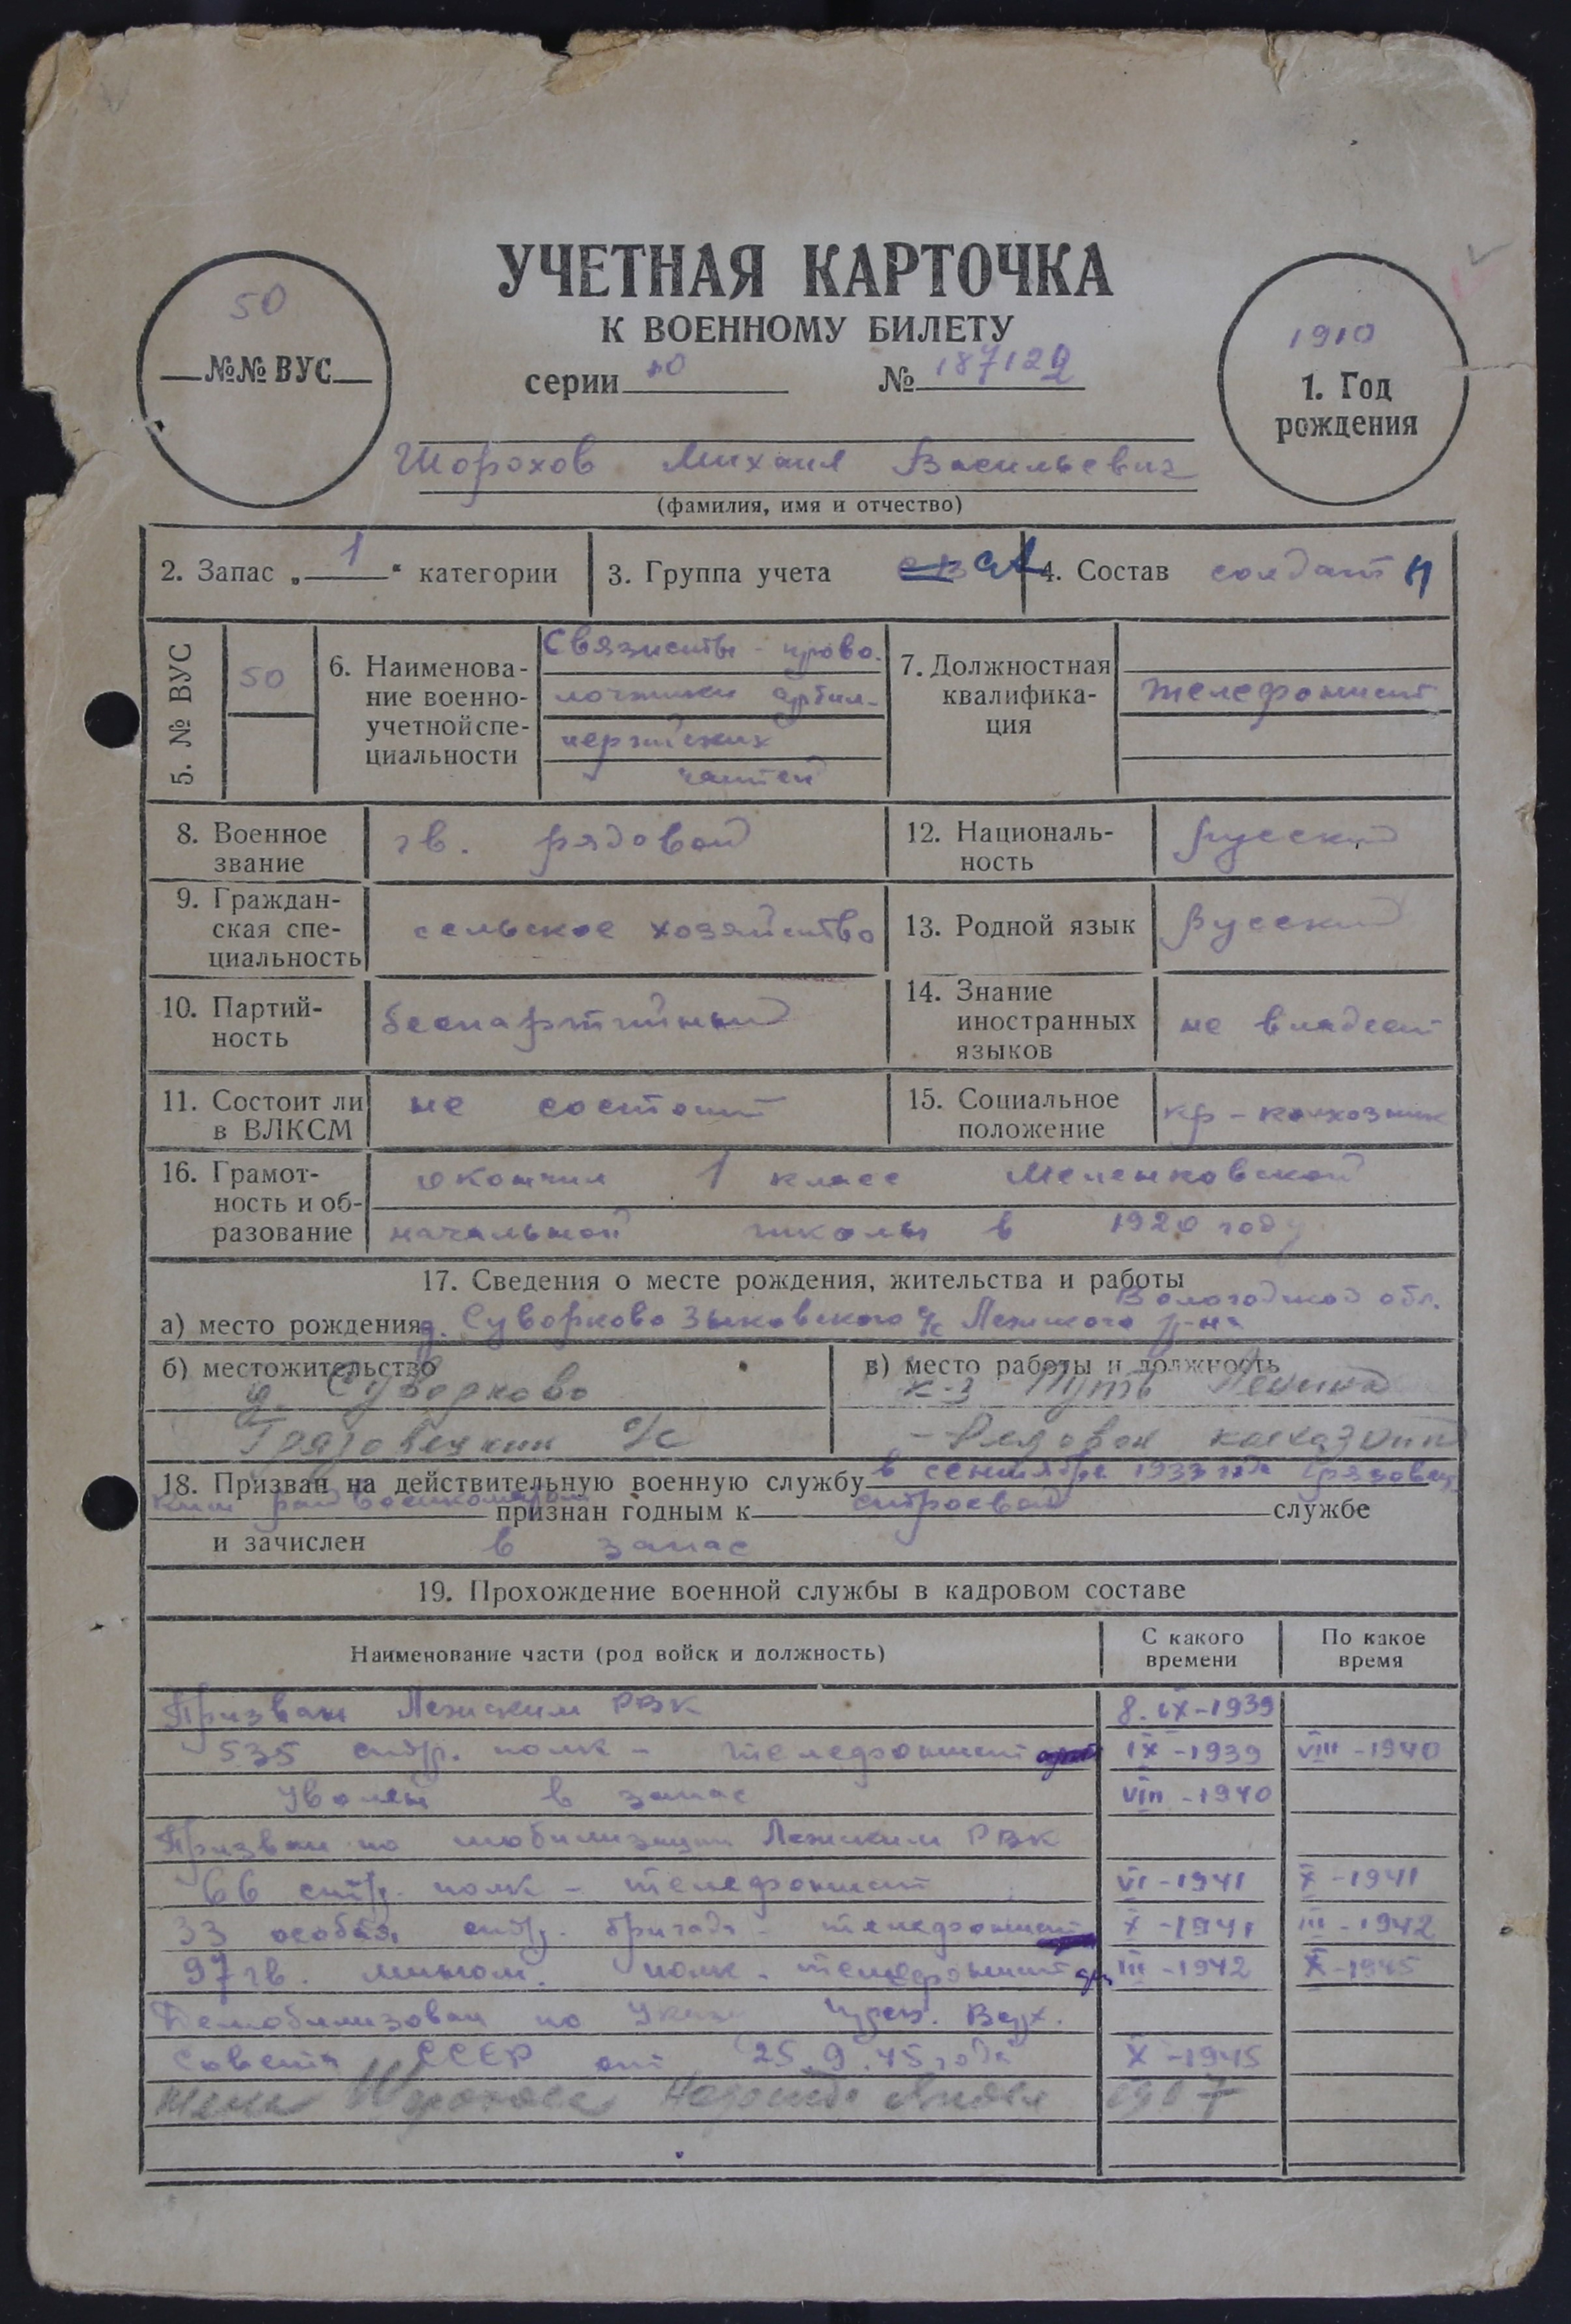 УЧЕТНАЯ КАРТОЧКА
К ВОЕННОМУ БИЛЕТУ
50
№№ ВУС
серии № 187122
1910
1. Год
рождения
Шорохов Михаил Васильевич
(фамилия, имя и отчество)
2. Запас „ 1 “ категории
3. Группа учета СА
4. Состав солдат
5. № ВУС
50
6. Наименова-
ние военно-
учетной спе-
циальности
Связисты - прово-
лочники артил-
лерийских
частей
7. Должностная
квалифика-
ция
телефонист
8. Военное
звание
гв. рядовой
12. Националь-
ность
русский
9. Граждан-
ская спе-
циальность
сельское хозяйство
13. Родной язык
Русский
10. Партий-
ность
беспартийный
14. Знание
иностранных
языков
не владеет
11. Состоит ли
в ВЛКСМ
не состоит
15. Социальное
положение
кр - колхозник
16. Грамот-
ность и об-
разование
окончил 1 класс
начальной школы в 1920 году
17. Сведения о месте рождения, жительства и работы
Вологодской обл.
а) место рождения д. Суворково Зыковского с/с Лежского р-на
б) местожительство
д. Суворково
с/с
в) место работы и должность
к-з Путь Ленина
- Рядовой
18. Призван на действительную военную службу в сентябре 1933 года Грязовец-
ким райвоенкоматом признан годным к строевой службе
и зачислен в запас
19. Прохождение военной службы в кадровом составе
Наименование части (род войск и должность)
С какого
времени
По какое
время
Призван Лежским РВК 8.IX-1939
535 стр. полк - телефонист IX-1939 VIII-1940
Уволен в запас VIII-1940
Призван по мобилизации Лежским РВК
66 стр. полк - телефонист VI-1941 X-1941
33 особая стр. бригада - телефонист X-1941 III-1942
97 гв. мином. полк - телефонист III-1942 X-1945
Демобилизован по Указу през. Верх.
Совета СССР от 25.9.45 года X-1945
жена Шорохова 1907